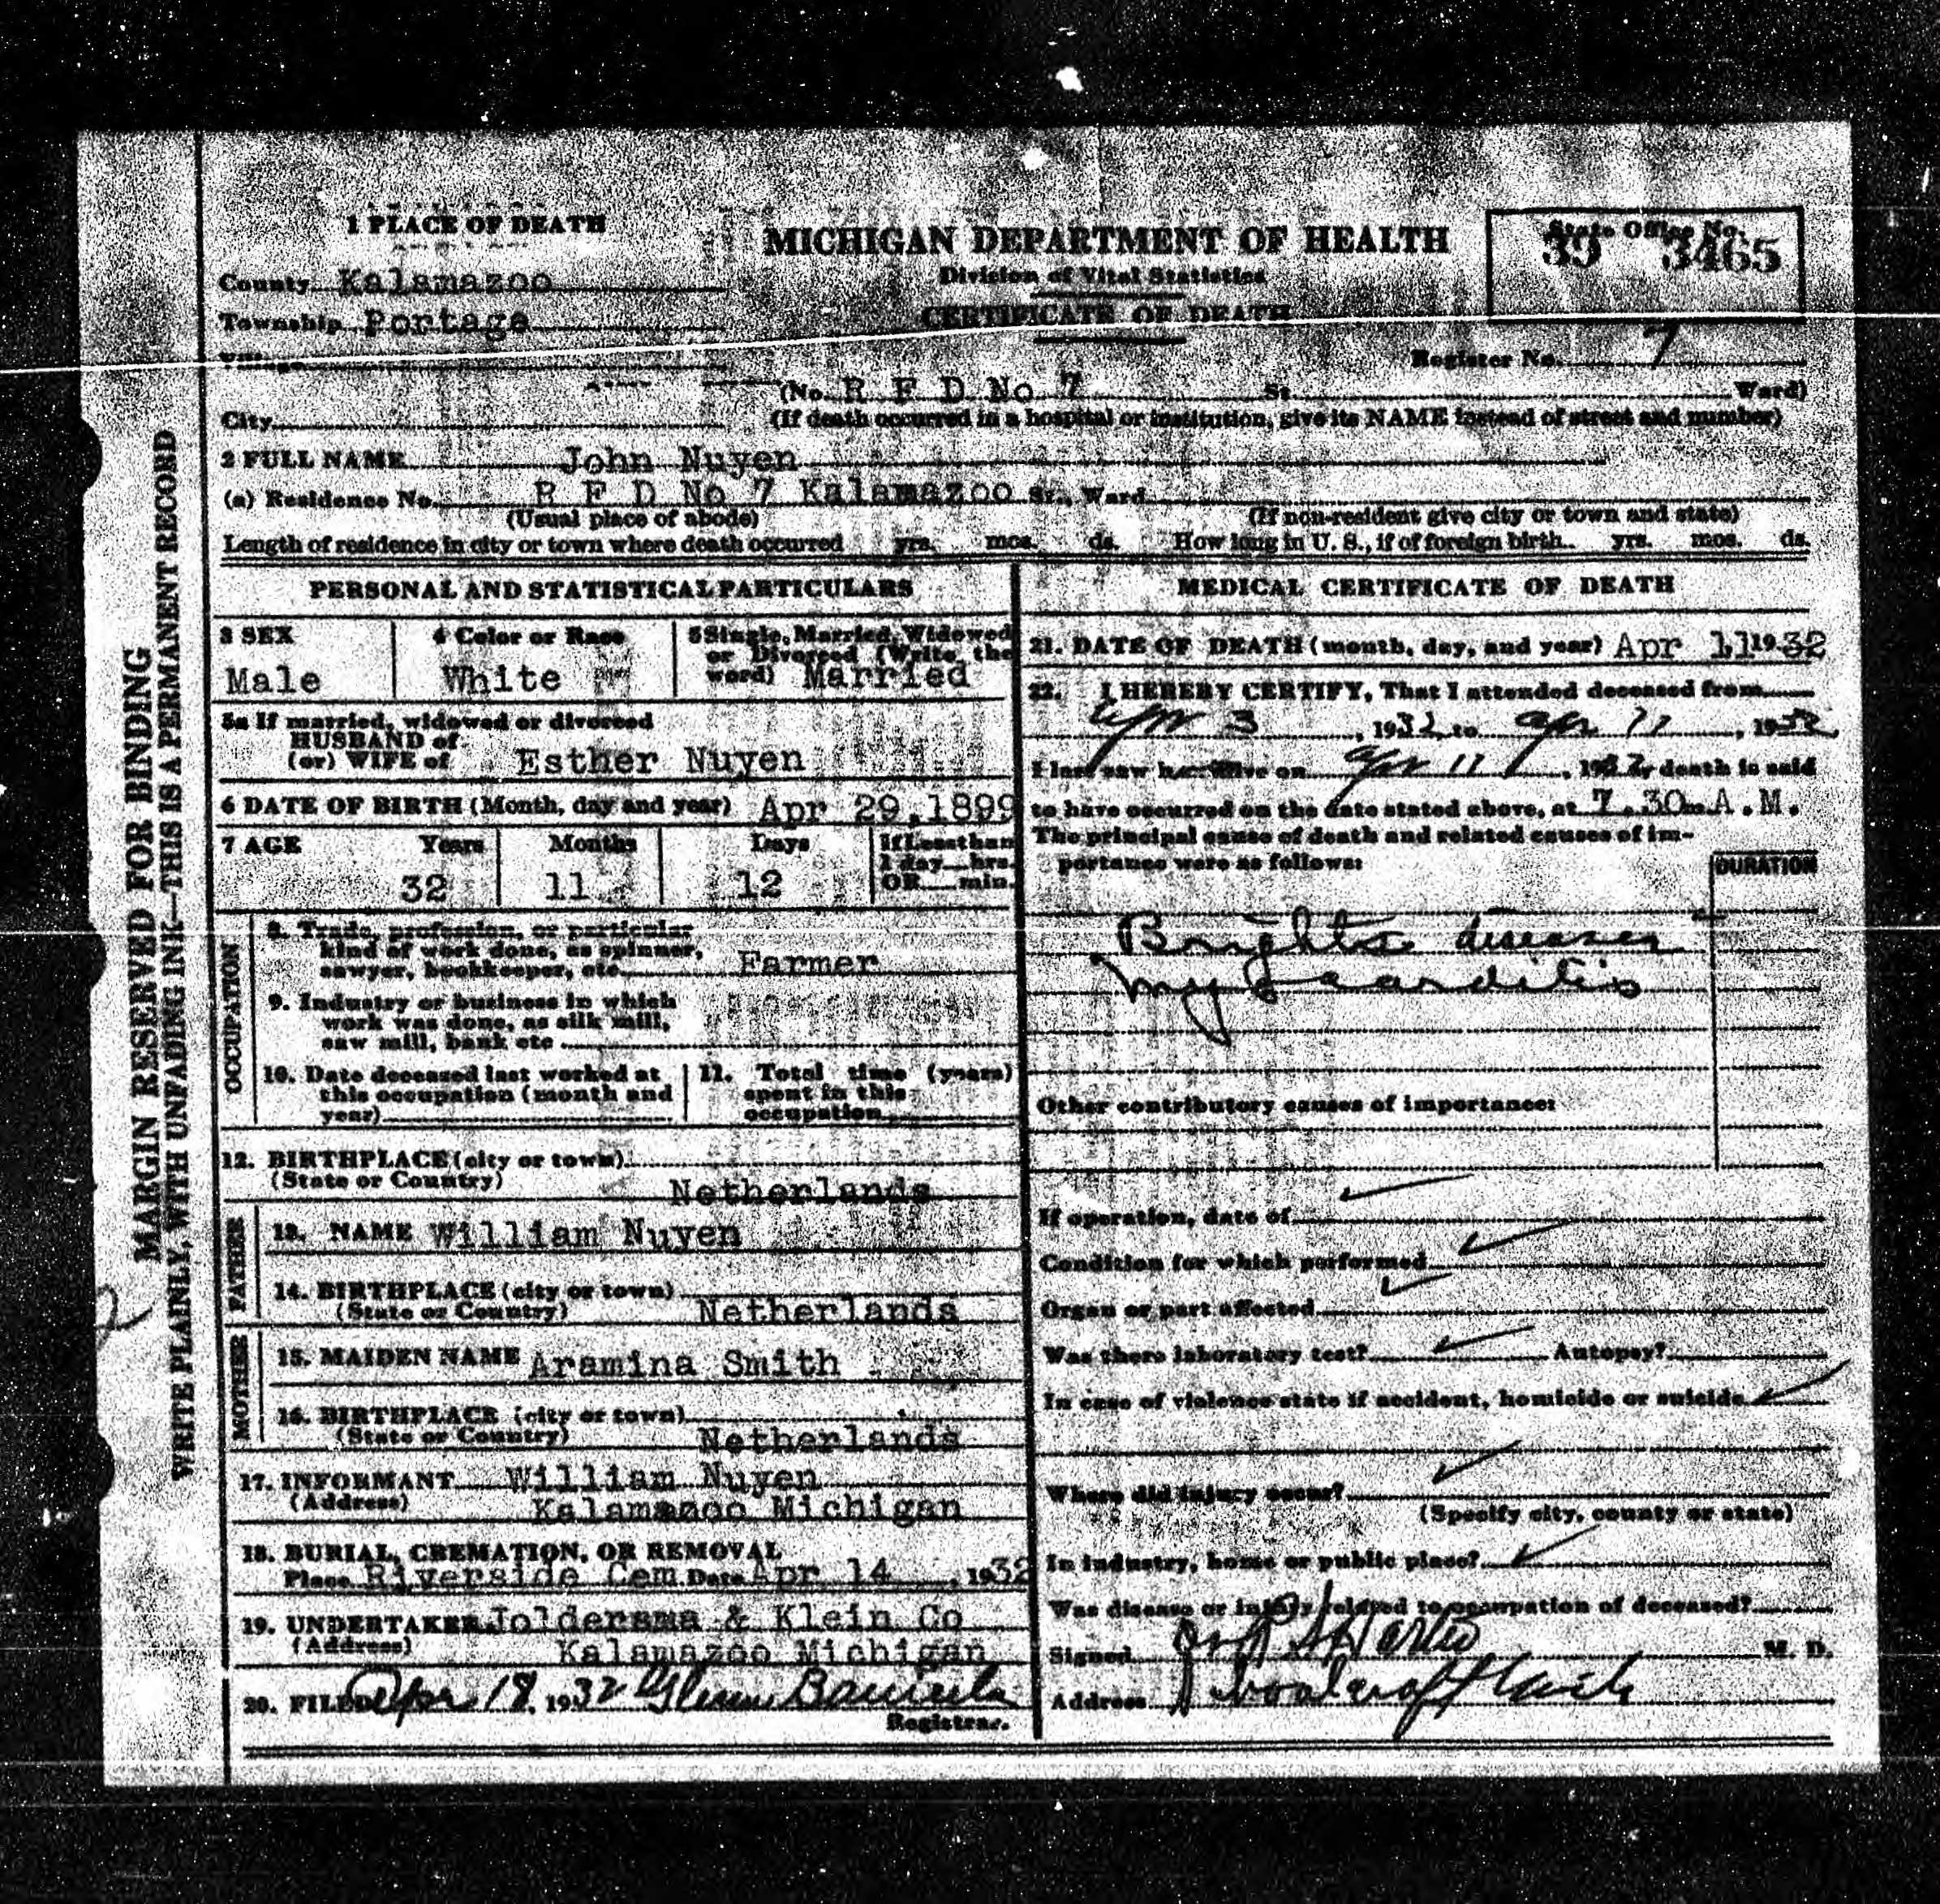 1 PLACE OF DEATH
MICHIGAN DEPARTMENT OF HEALTH
Division of Vital Statistics
CERTIFICATE OF DEATH
State Office No.
39 3465
County Kalamazoo
Township Portage
Village
Register No. 7
(No. R F D No 7 St. Ward)
City
(If death occurred in a hospital or institution, give its NAME instead of street and number)
2 FULL NAME John Nuyen
(a) Residence No. R F D No 7 Kalamazoo St., Ward
(Usual place of abode)
(If non-resident give city or town and state)
Length of residence in city or town where death occurred yrs. mos. ds. How long in U. S., if of foreign birth.. yrs. mos. ds.
MARGIN RESERVED FOR BINDING
WRITE PLAINLY, WITH UNFADING INK—THIS IS A PERMANENT RECORD
PERSONAL AND STATISTICAL PARTICULARS
3 SEX
Male
4 Color or Race
White
5 Single, Married, Widowed
or Divorced (Write the
word) Married
5a If married, widowed or divorced
HUSBAND of
(or) WIFE of Esther Nuyen
6 DATE OF BIRTH (Month, day and year) Apr 29, 1899
7 AGE Years Months Days If Less than
1 day hrs.
32 11 12 OR min.
OCCUPATION
8. Trade, profession, or particular
kind of work done, as spinner,
sawyer, bookkeeper, etc. Farmer
9. Industry or business in which
work was done, as silk mill,
saw mill, bank etc
10. Date deceased last worked at
this occupation (month and
year)
11. Total time (years)
spent in this
occupation
12. BIRTHPLACE (city or town)
(State or Country) Netherlands
FATHER
13. NAME William Nuyen
14. BIRTHPLACE (city or town)
(State or Country) Netherlands
MOTHER
15. MAIDEN NAME Aramina Smith
16. BIRTHPLACE (city or town)
(State or Country) Netherlands
17. INFORMANT William Nuyen
(Address) Kalamazoo Michigan
18. BURIAL, CREMATION, OR REMOVAL
Place Riverside Cem. Date Apr 14, 1932
19. UNDERTAKER Joldersma & Klein Co
(Address) Kalamazoo Michigan
20. FILED Apr 18, 1932 Glenn
Registrar.
MEDICAL CERTIFICATE OF DEATH
21. DATE OF DEATH (month, day, and year) Apr 11 1932
22. I HEREBY CERTIFY, That I attended deceased from
Apr 3, 1932, to Apr 11, 1932
I last saw h alive on Apr 11, 1932, death is said
to have occurred on the date stated above, at 7.30m A.M.
The principal cause of death and related causes of im-
portance were as follows:
DURATION
Brights disease
Myocarditis
Other contributory causes of importance:
If operation, date of
Condition for which performed
Organ or part affected
Was there laboratory test? Autopsy?
In case of violence state if accident, homicide or suicide
Where did injury occur?
(Specify city, county or state)
In industry, home or public place?
Was disease or injury related to occupation of deceased?
Signed M. D.
Address